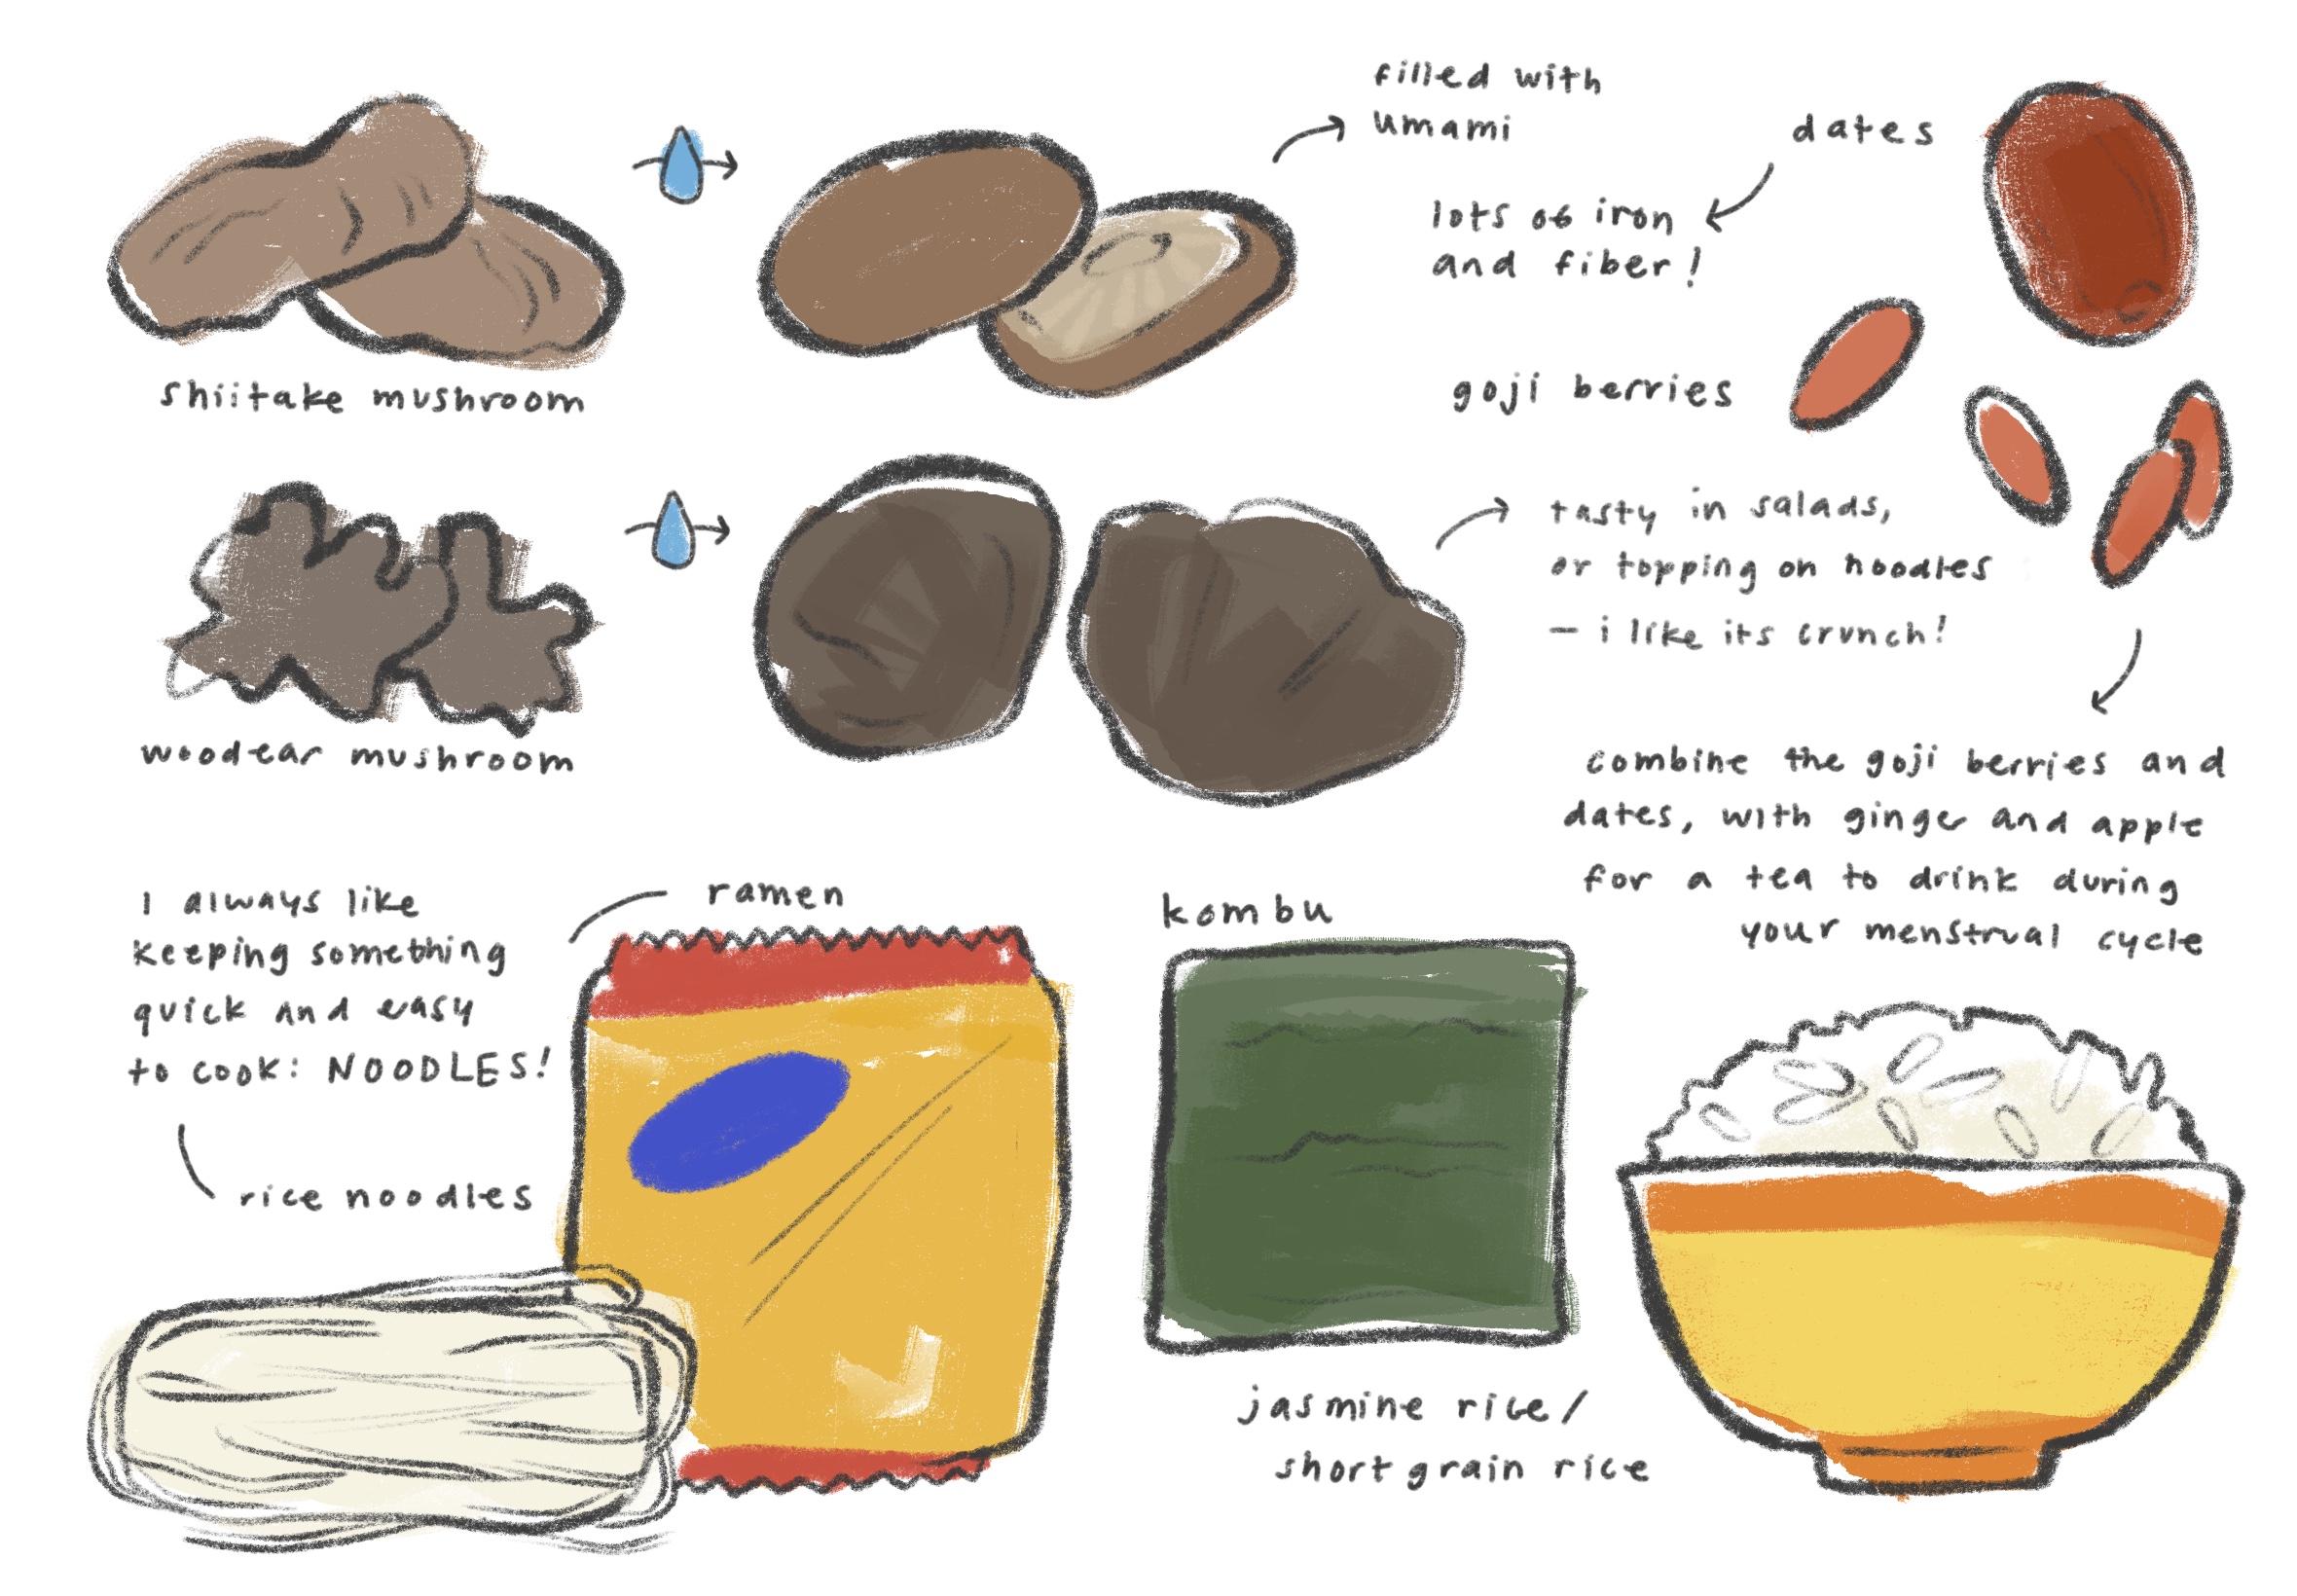 filled with
umami
dates
lots of iron
and fiber!
shiitake mushroom
goji berries
tasty in salads,
or topping on noodles
– i like its crunch!
woodear mushroom
combine the goji berries and
dates, with ginger and apple
for a tea to drink during
your menstrual cycle
I always like
keeping something
quick and easy
to cook: NOODLES!
ramen
rice noodles
kombu
jasmine rice/
short grain rice